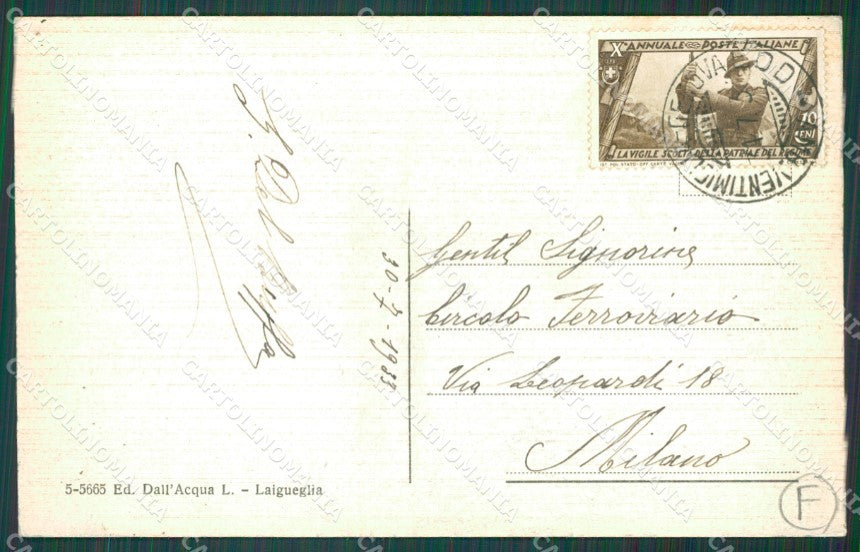 X ANNUALE POSTE ITALIANE
10
CENT
LA VIGILE SCOLTA DELLA PATRIA E DEL REGIME
GENOVA
VENTIMIGLIA
30-7-1933
Gentil Signorine
Circolo Ferroviario
Via Leopardi 18
Milano
5-5665 Ed. Dall'Acqua L. - Laigueglia
F
CARTOLINOMANIA